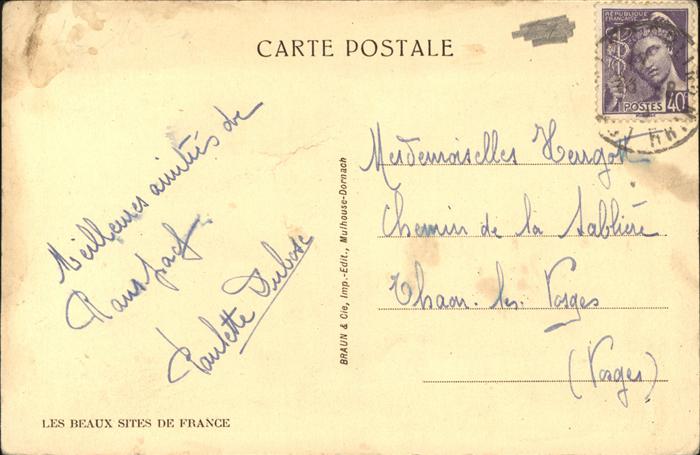 CARTE POSTALE
RÉPUBLIQUE
FRANÇAISE
POSTES 40c
Meilleures amitiés de
Ranspach
Paulette Dubosc
Mesdemoiselles
Chemin de la Sablière
Thaon-les-Vosges
(Vosges)
BRAUN & Cie, Imp.-Edit., Mulhouse-Dornach
LES BEAUX SITES DE FRANCE